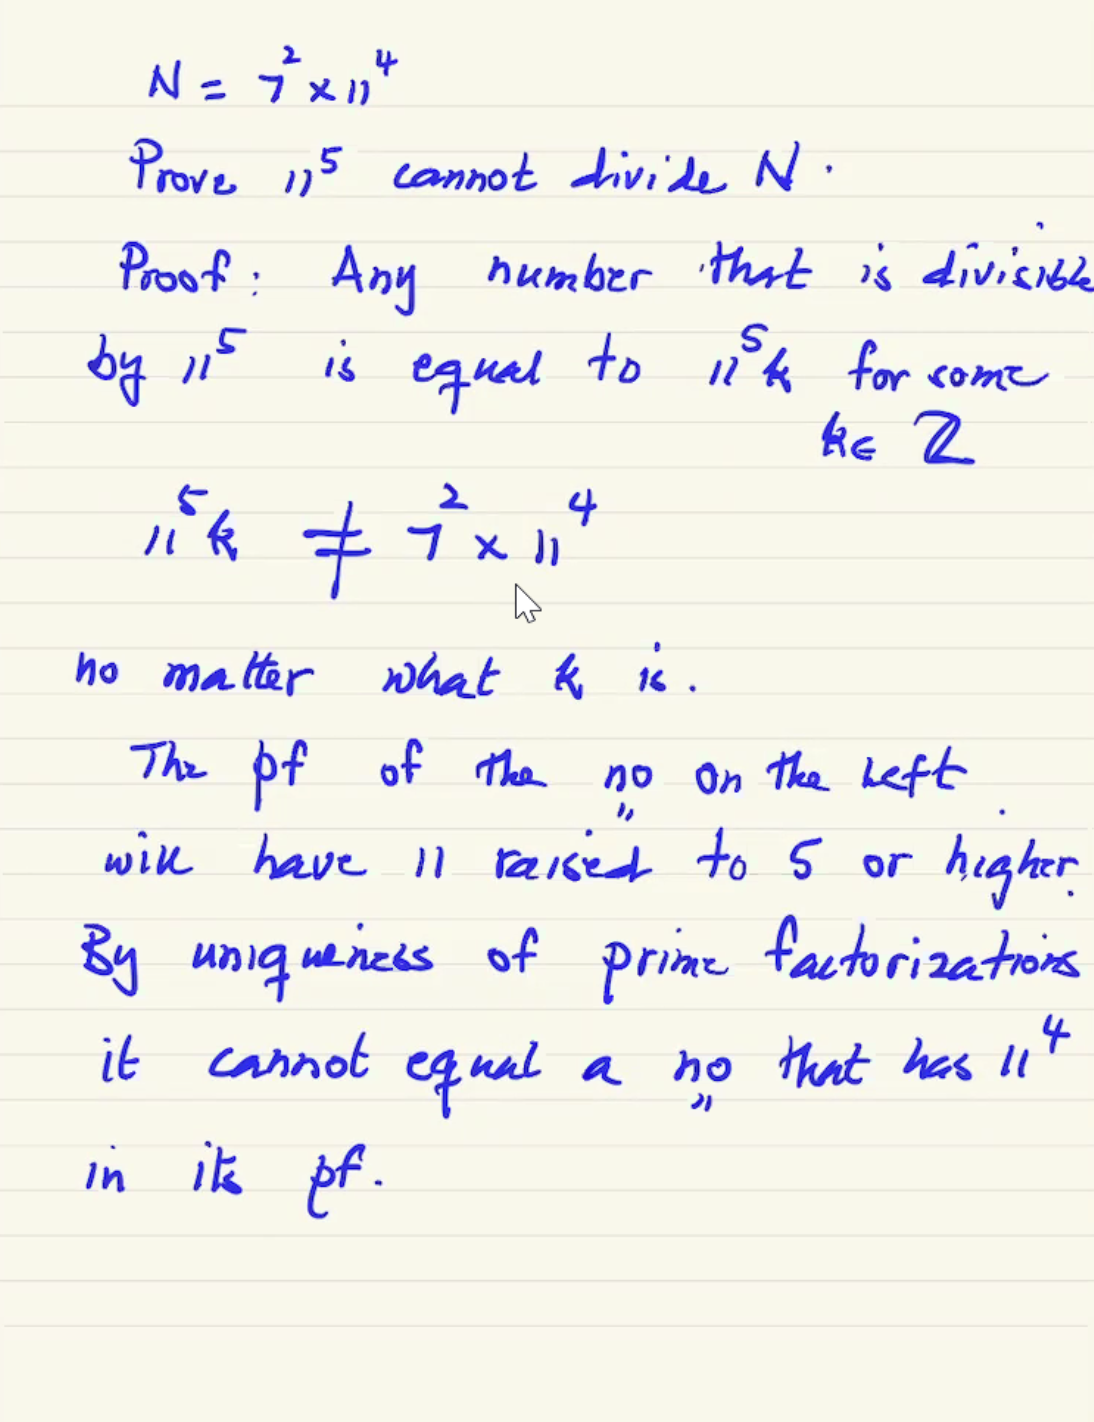 N = 7² × 11⁴
Prove 11⁵ cannot divide N.
Proof: Any number that is divisible
by 11⁵ is equal to 11⁵k for some
k∈ ℤ
11⁵k ≠ 7² × 11⁴
no matter what k is.
The pf of the no on the left
will have 11 raised to 5 or higher.
By uniqueness of prime factorizations
it cannot equal a no that has 11⁴
in its pf.